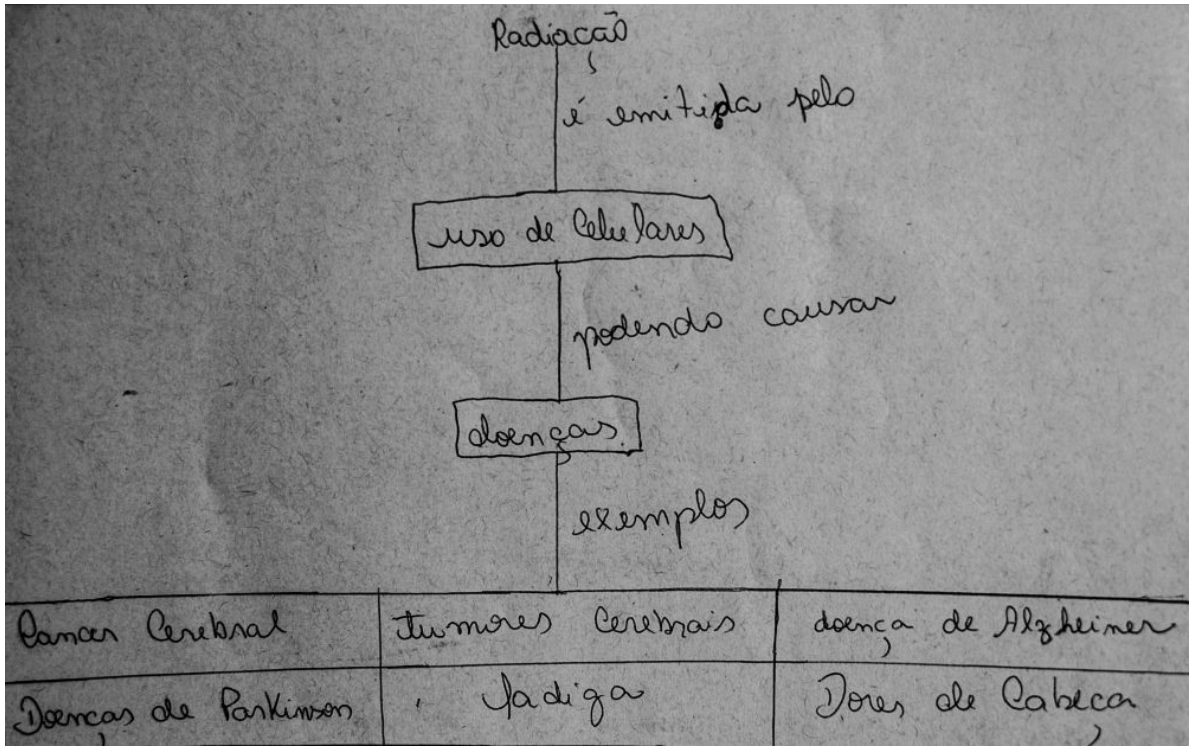 Radiação
é emitida pelo
uso de Celulares
podendo causar
doenças.
exemplos
Câncer Cerebral
tumores Cerebrais
doença de Alzheimer
Doenças de Parkinson
fadiga
Dores de Cabeça